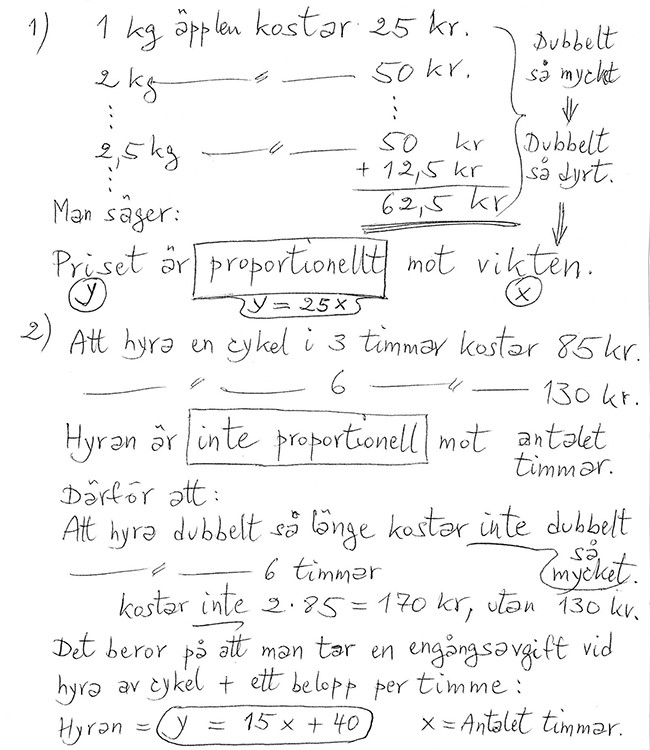 1) 1 kg äpplen kostar 25 kr.
2 kg — " — 50 kr.
2,5 kg — " — 50 kr
+ 12,5 kr
62,5 kr
Dubbelt
så mycket
⇓
Dubbelt
så dyrt.
⇓
Man säger:
Priset är proportionellt mot vikten.
y y = 25x x
2) Att hyra en cykel i 3 timmar kostar 85 kr.
— " — 6 — " — 130 kr.
Hyran är inte proportionell mot antalet
timmar.
Därför att:
Att hyra dubbelt så länge kostar inte dubbelt
så
mycket.
— " — 6 timmar
kostar inte 2·85 = 170 kr, utan 130 kr.
Det beror på att man tar en engångsavgift vid
hyra av cykel + ett belopp per timme:
Hyran = y = 15x + 40 x = Antalet timmar.